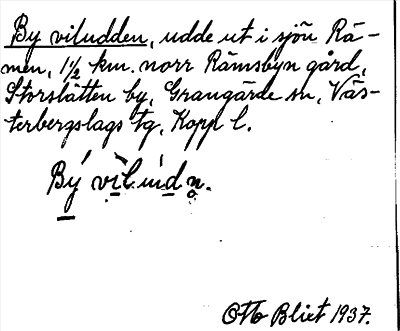 By viludden, udde ut i sjön Rä-
men, 1½ km. norr Rämsbyn gård,
Storslätten by, Grangärde sn, Väs-
terbergslags tg, Kopp l.
Otto Blixt 1937.